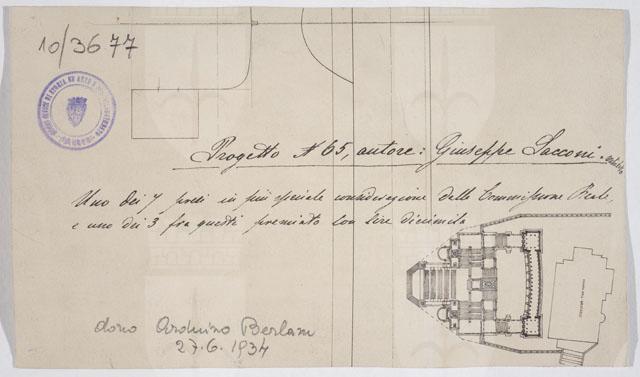 10/3677
Progetto N 65, autore: Giuseppe Sacconi
Uno dei 7 presi in più speciale considerazione dalla Commissione Reale,
e uno dei 3 fra questi premiato con lire diecimila
dono Arduino Berlam
27.6.1934